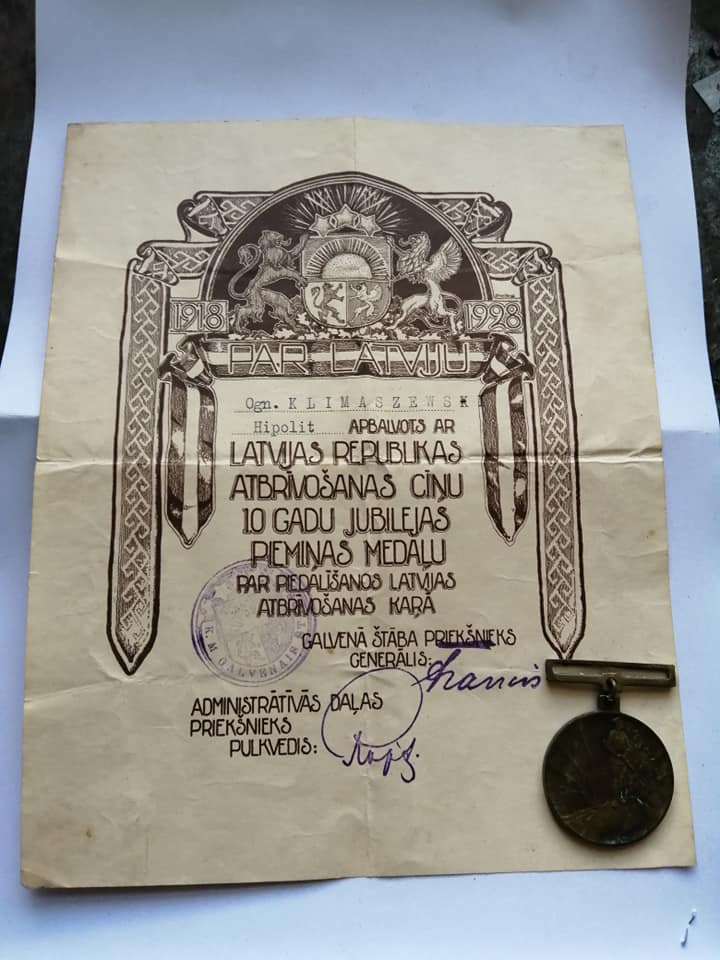 1918 1928
PAR LATVIJU
Ogn. KLIMASZEWSKI
Hipolit APBALVOTS AR
LATVIJAS REPUBLIKAS
ATBRĪVOŠANAS CĪŅU
10 GADU JUBILEJAS
PIEMIŅAS MEDAĻU
PAR PIEDALĪŠANOS LATVIJAS
ATBRĪVOŠANAS KAŖĀ
GALVENĀ ŠTĀBA PRIEKŠNIEKS
ĢENERĀLIS:
ADMINISTRĀTĪVĀS DAĻAS
PRIEKŠNIEKS
PULKVEDIS:
K.M. GALVENAIS